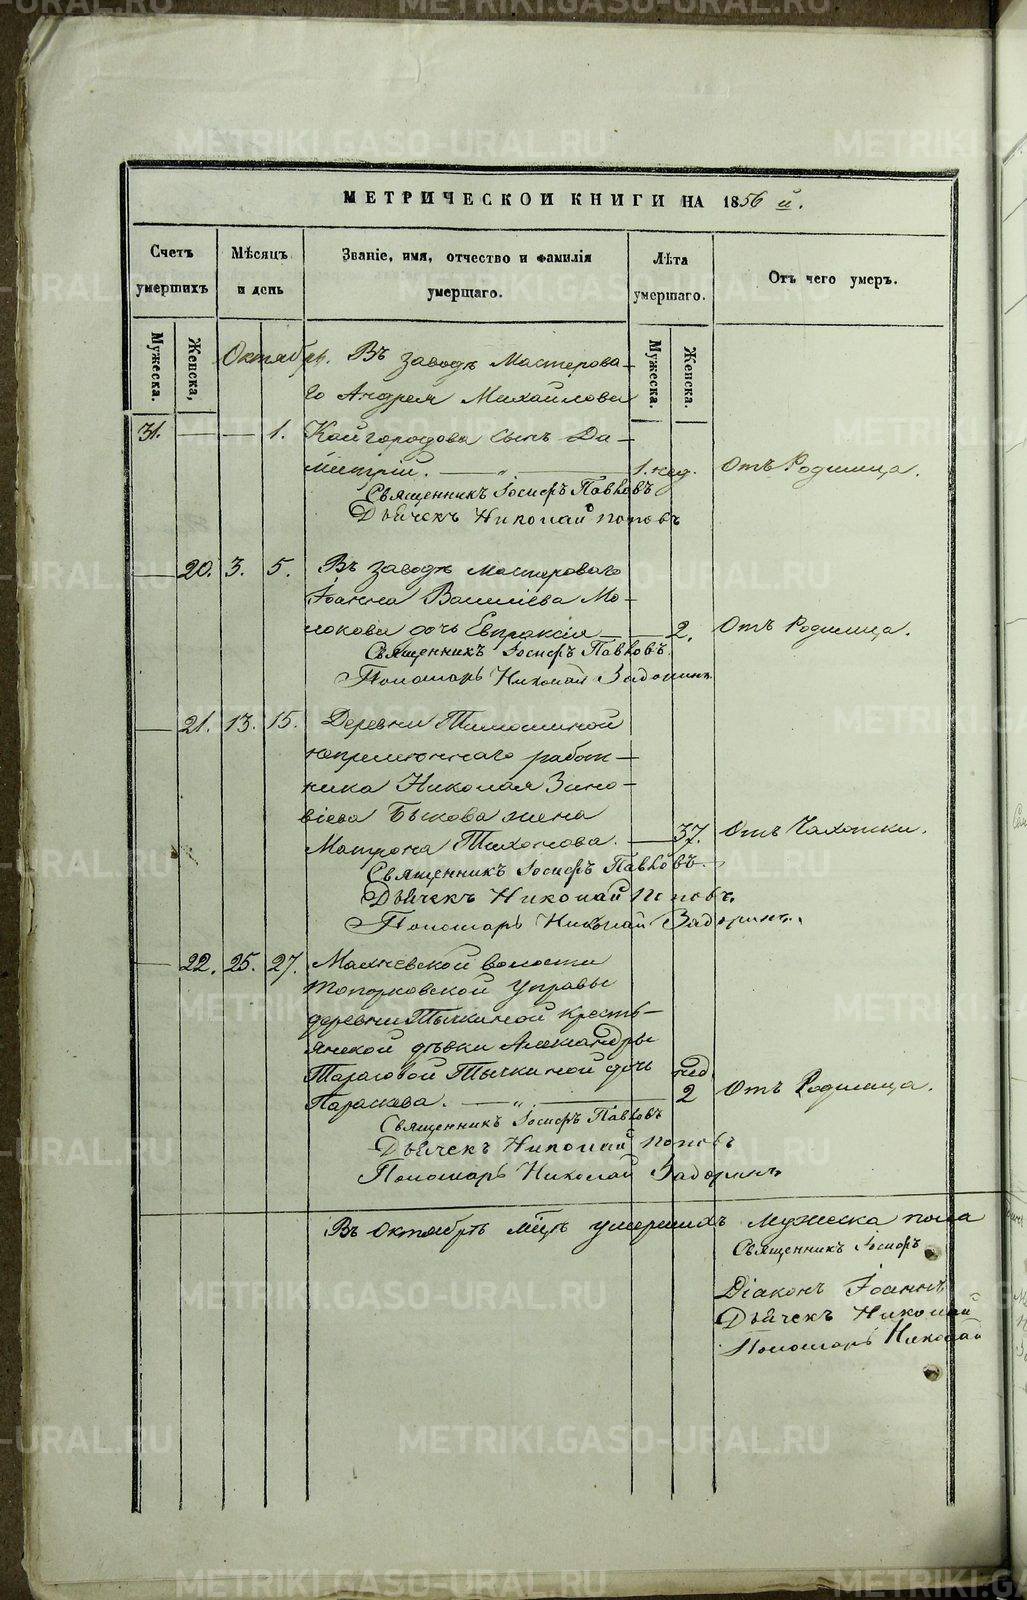 МЕТРИЧЕСКОЙ КНИГИ НА 1856 й.
Счетъ умершихъ
Мѣсяцъ и день
Званіе, имя, отчество и фамилія умершаго.
Лѣта умершаго.
Отъ чего умеръ.
Мужеска.
Женска,
Мужеска.
Женска.
Октябрь. Въ заводѣ Мастерова-
го Андрея Михайлова
31. 1. Кайгородова сынъ Ди-
митрій. 1. нед. Отъ Родимца.
Священникъ Іосифъ Павловъ
Дьячекъ Николай Поповъ
20. 3. 5. Въ заводѣ мастероваго
Іоанна Василіева Мо-
локова дочь Евпраксія 2. Отъ Родимца.
Священникъ Іосифъ Павловъ.
Пономарь Николай Задоринъ
21. 13. 15. Деревни Тимошиной
непремѣннаго работ-
ника Николая Зино-
віева Быкова жена
Матрона Тихонова. 37. Отъ Чахотки.
Священникъ Іосифъ Павловъ.
Дьячекъ Николай Поповъ.
Пономарь Николай Задоринъ.
22. 25. 27. Махневской волости
Топорковской Управы
деревни Тычкиной кресть-
янской дѣвки Александры
Тарасовой Тычкиной дочь нед
Параскева. 2 Отъ Родимца.
Священникъ Іосифъ Павловъ
Дьячекъ Николай Поповъ
Пономарь Николай Задоринъ
Въ Октябрѣ мцѣ умершихъ Мужеска пола
Священникъ Іосифъ
Діаконъ Іоаннъ
Дьячекъ Николай
Пономарь Николай
METRIKI.GASO-URAL.RU